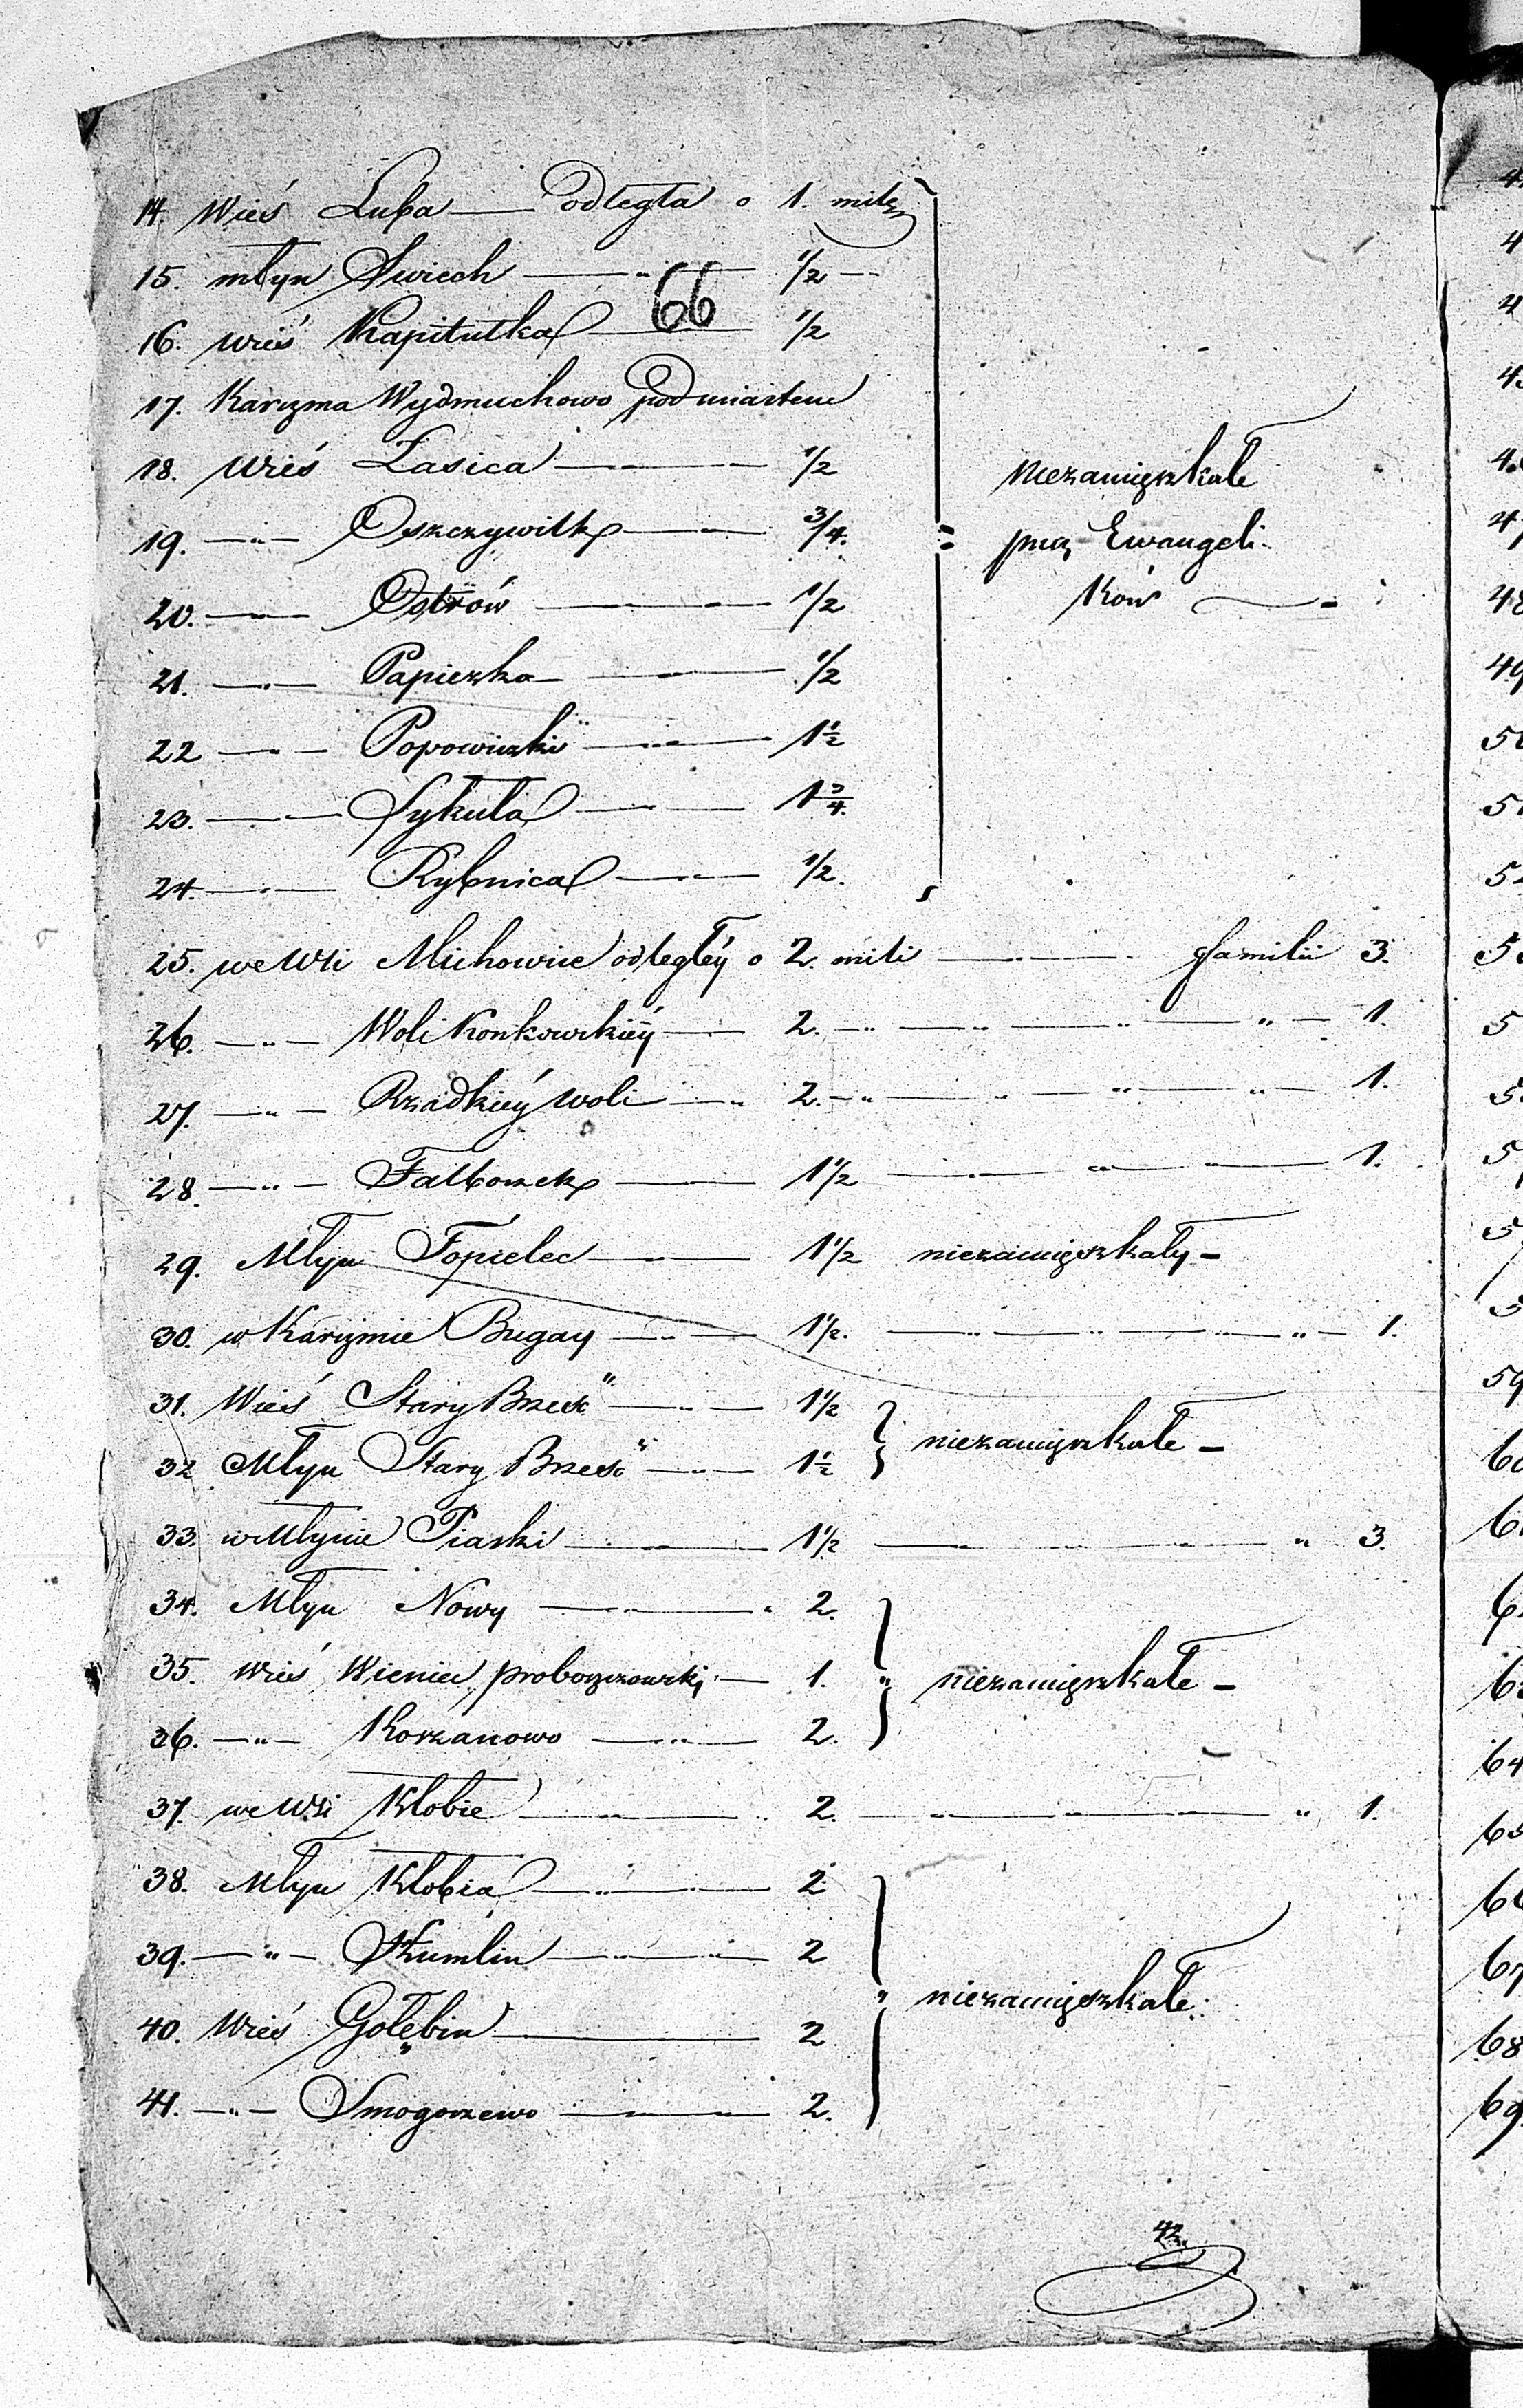 14. Wieś Luba — odległa o 1. milę
15. młyn Swiech — " — 1/2 —
66
16. wieś Kapitułka — 1/2
17. Karczma Wydmuchowo pod miastem
18. Wieś Lasica — " — 1/2
niezamięszkałe
19. — " — Oszczywilk — " — 3/4.
przez Ewangeli-
20. — " — Ostrów — " — 1/2
ków —
21. — " — Papieżka — " — 1/2
22 — " — Popowiczki — " — 1 1/2
23. — " — Sykuła — " — 1 3/4.
24. — " — Rybnica — " — 1/2.
25. we Wsi Michowice odległéy o 2. mili — " — familii 3.
26. — " — Woli Konkowskiéy — " — 2. — " — " — " — " — 1.
27. — " — Rzadkiéy woli — " 2. — " — " — " — " — 1.
28. — " — Falborzek — 1 1/2 — " — " — 1.
29. Młyn Topielec — " — 1 1/2 niezamięszkały —
30. w Karczmie Bugay — " — 1 1/2. — " — " — " — " — 1.
31. Wieś Stary Brześć — " — 1 1/2
niezamięszkałe —
32 Młyn Stary Brześć — " — 1 1/2
33. w Młynie Piaski — " — 1 1/2 — " — " — " 3.
34. Młyn Nowy — " — " 2.
35. Wieś Wieniec proboszczowski — 1. " niezamięszkałe —
36. — " — Korzanowo — " — 2.
37. we Wsi Kłobie — " — 2. — " — " — " 1.
38. Młyn Kłobia — " — 2
39. — " — Kumlin — " — 2
" niezamięszkałe.
40. Wieś Gołębin — 2
41. — " — Smogorzewo — " — 2.
42.